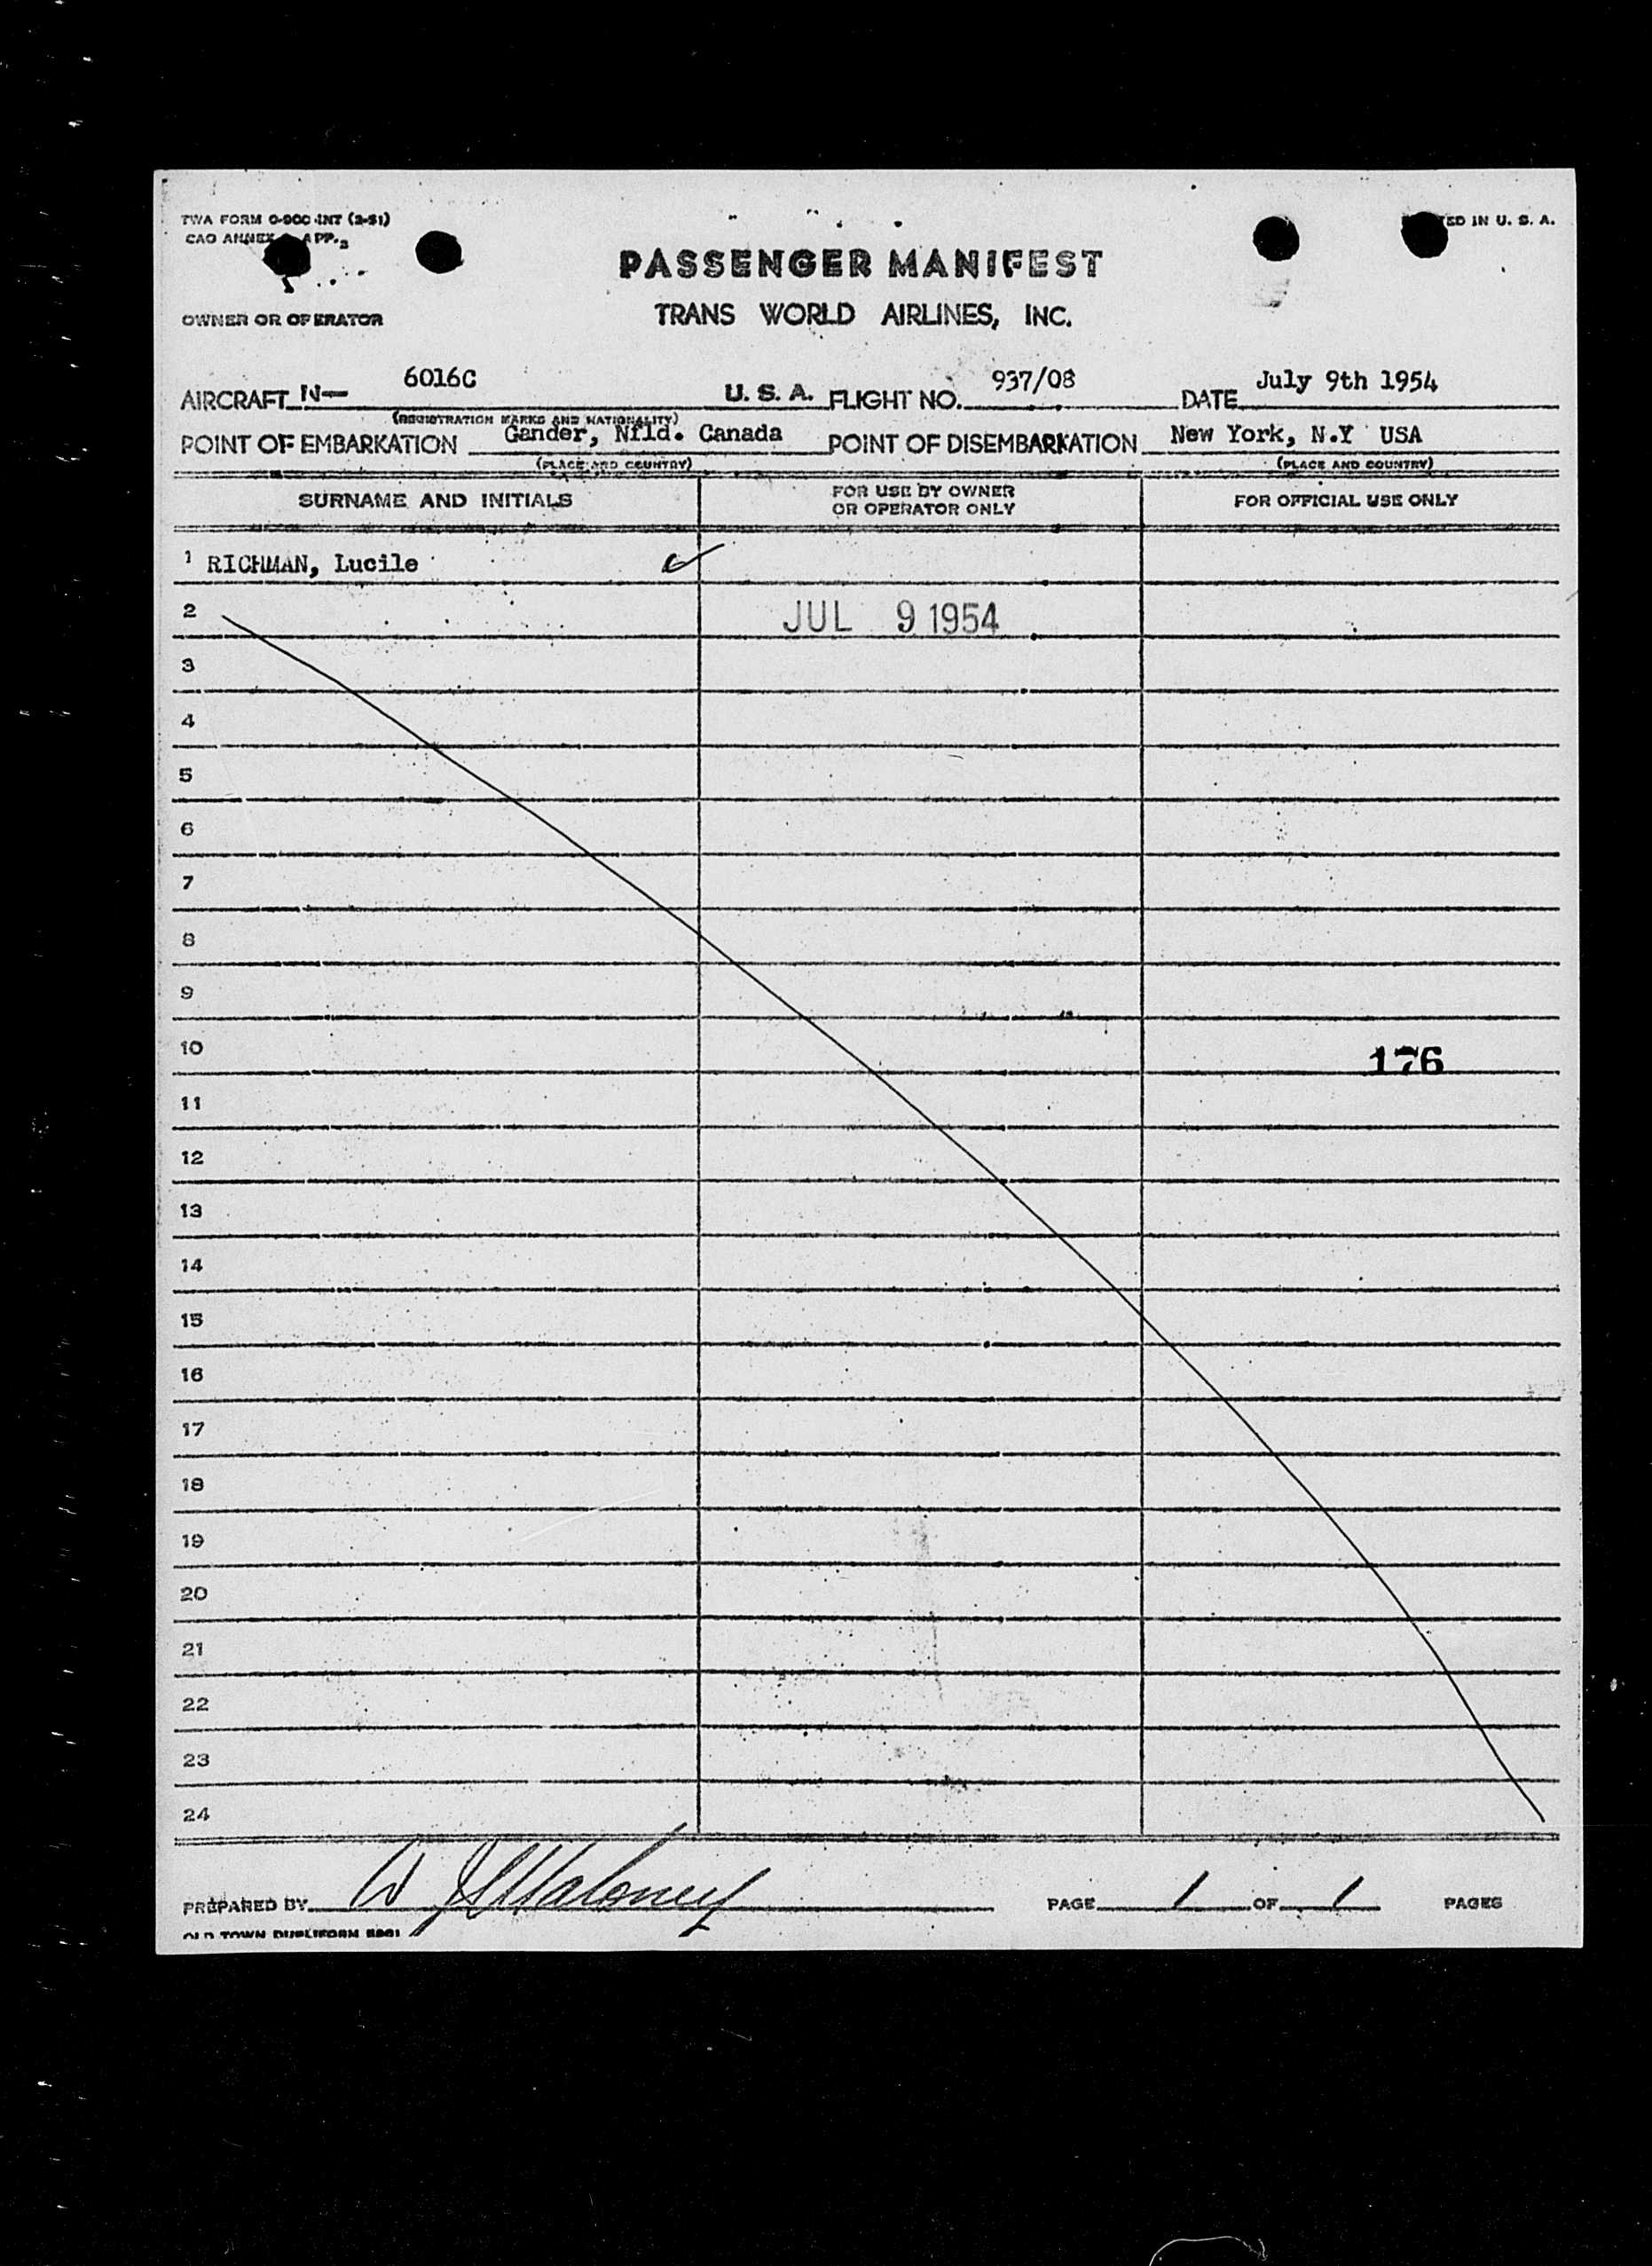 TWA FORM O-900-INT (2-51)
PRINTED IN U. S. A.
CAO ANNEX APP. 2
PASSENGER MANIFEST
OWNER OR OPERATOR
TRANS WORLD AIRLINES, INC.
AIRCRAFT N— 6016C U. S. A. FLIGHT NO. 937/08 DATE July 9th 1954
(REGISTRATION MARKS AND NATIONALITY)
POINT OF EMBARKATION Gander, Nfld. Canada POINT OF DISEMBARKATION New York, N.Y USA
(PLACE AND COUNTRY) (PLACE AND COUNTRY)
SURNAME AND INITIALS FOR USE BY OWNER OR OPERATOR ONLY FOR OFFICIAL USE ONLY
1 RICHMAN, Lucile
2 JUL 9 1954
3
4
5
6
7
8
9
10 176
11
12
13
14
15
16
17
18
19
20
21
22
23
24
PREPARED BY W Maloney PAGE 1 OF 1 PAGES
OLD TOWN DUPLIFORM